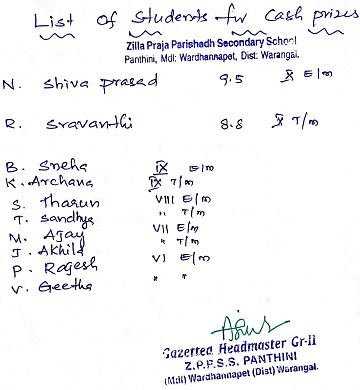 List of Students for Cash prizes
Zilla Praja Parishadh Secondary School
Panthini, Mdl: Wardhannapet, Dist: Warangal.
N. Shiva prasad 9.5 X E/m
R. Sravanthi 8.8 X T/m
B. Sneha IX E/m
K. Archana IX T/m
S. Tharun VIII E/m
T. Sandhya " T/m
M. Ajay VII E/m
J. Akhila " T/m
P. Rajesh VI E/m
V. Geetha " "
Gazetted Headmaster Gr-II
Z.P.P.S.S. PANTHINI
(Mdl) Wardhannapet (Dist) Warangal.